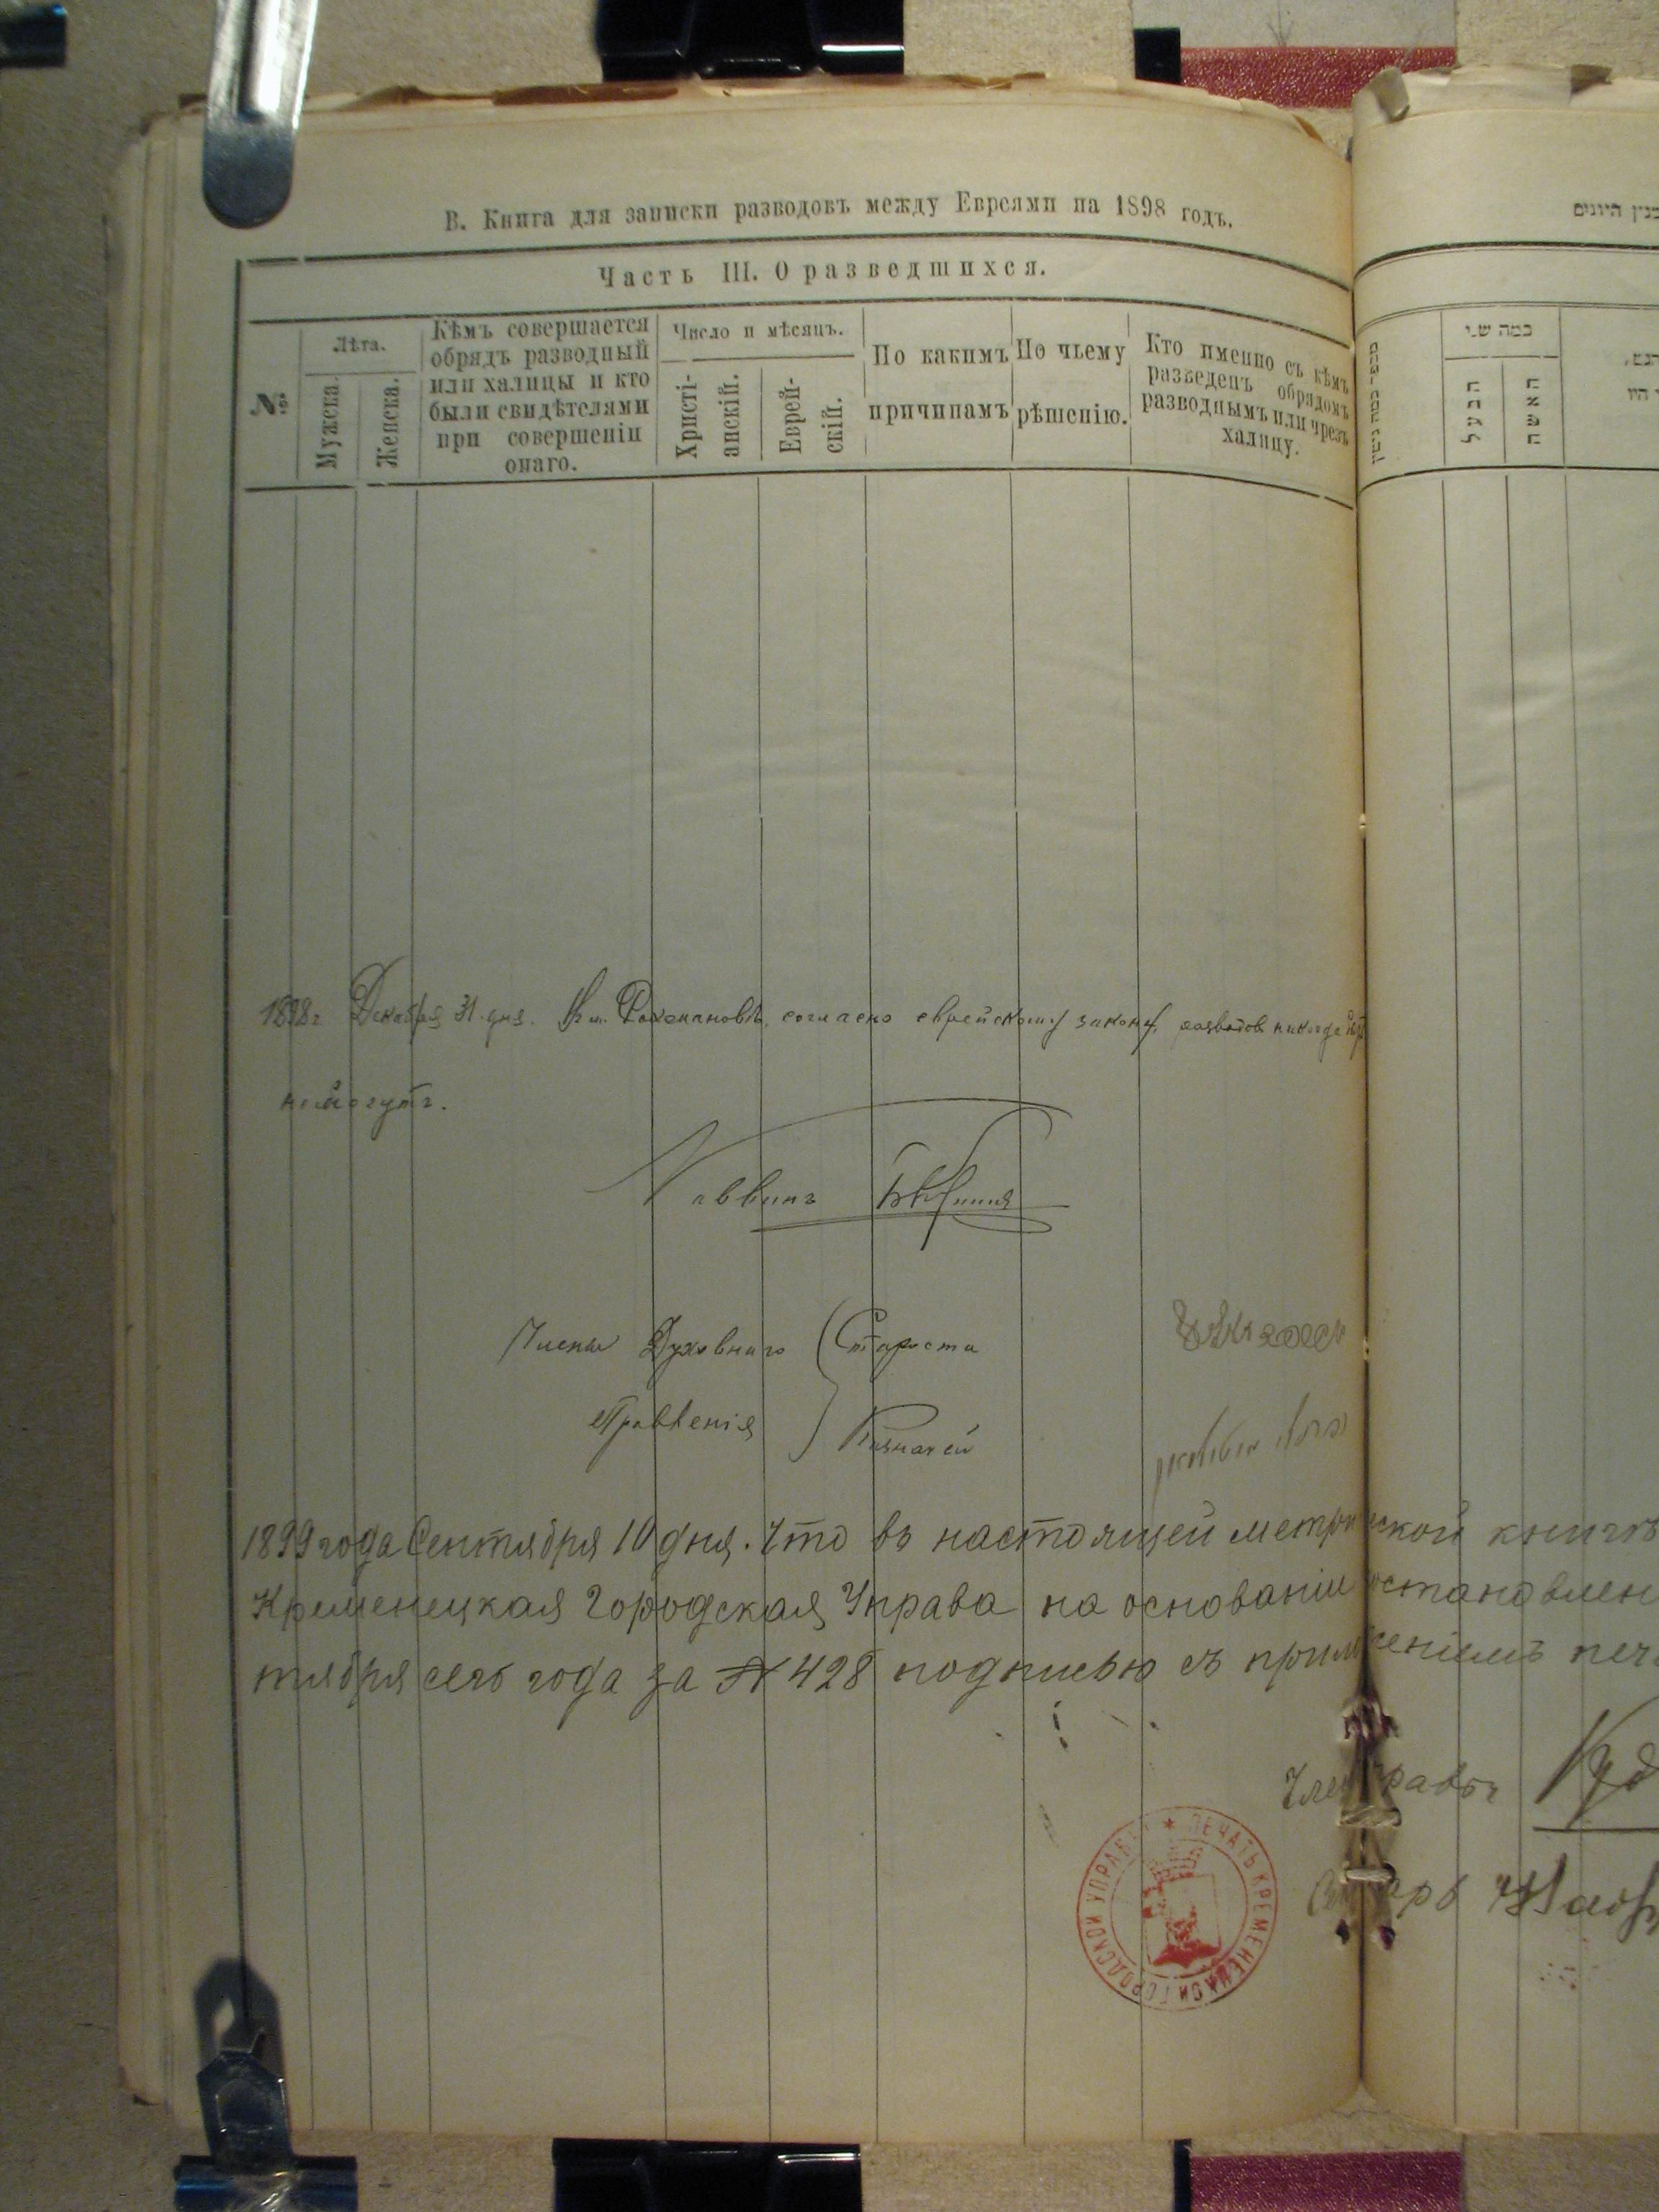 В. Книга для записки разводовъ между Евреями на 1898 годъ.
Часть III. О разведшихся.
№
Лѣта.
Мужска.
Женска.
Кѣмъ совершается
обрядъ разводный
или халицы и кто
были свидѣтелями
при совершеніи
онаго.
Число и мѣсяцъ.
Христі-
анскій.
Еврей-
скій.
По какимъ
причинамъ
По чьему
рѣшенію.
Кто именно съ кѣмъ
разведенъ обрядомъ
разводнымъ или чрезъ
халицу.
כמה שני
הבעל
האשה
1898 г Декабря 31 дня. согласно еврейскому закону, разводов никогда
Раввинъ
Члены Духовнаго Староста
Правленія Казначей
1899 года Сентября 10 дня. Что въ настоящей метрической книгѣ
Кременецкая Городская Управа на основаніи постановлен
тября сего года за № 428 подписью съ приложеніемъ печ
Член Управы
Секретарь
ПЕЧАТЬ КРЕМЕНЕЦКОЙ ГОРОДСКОЙ УПРАВЫ